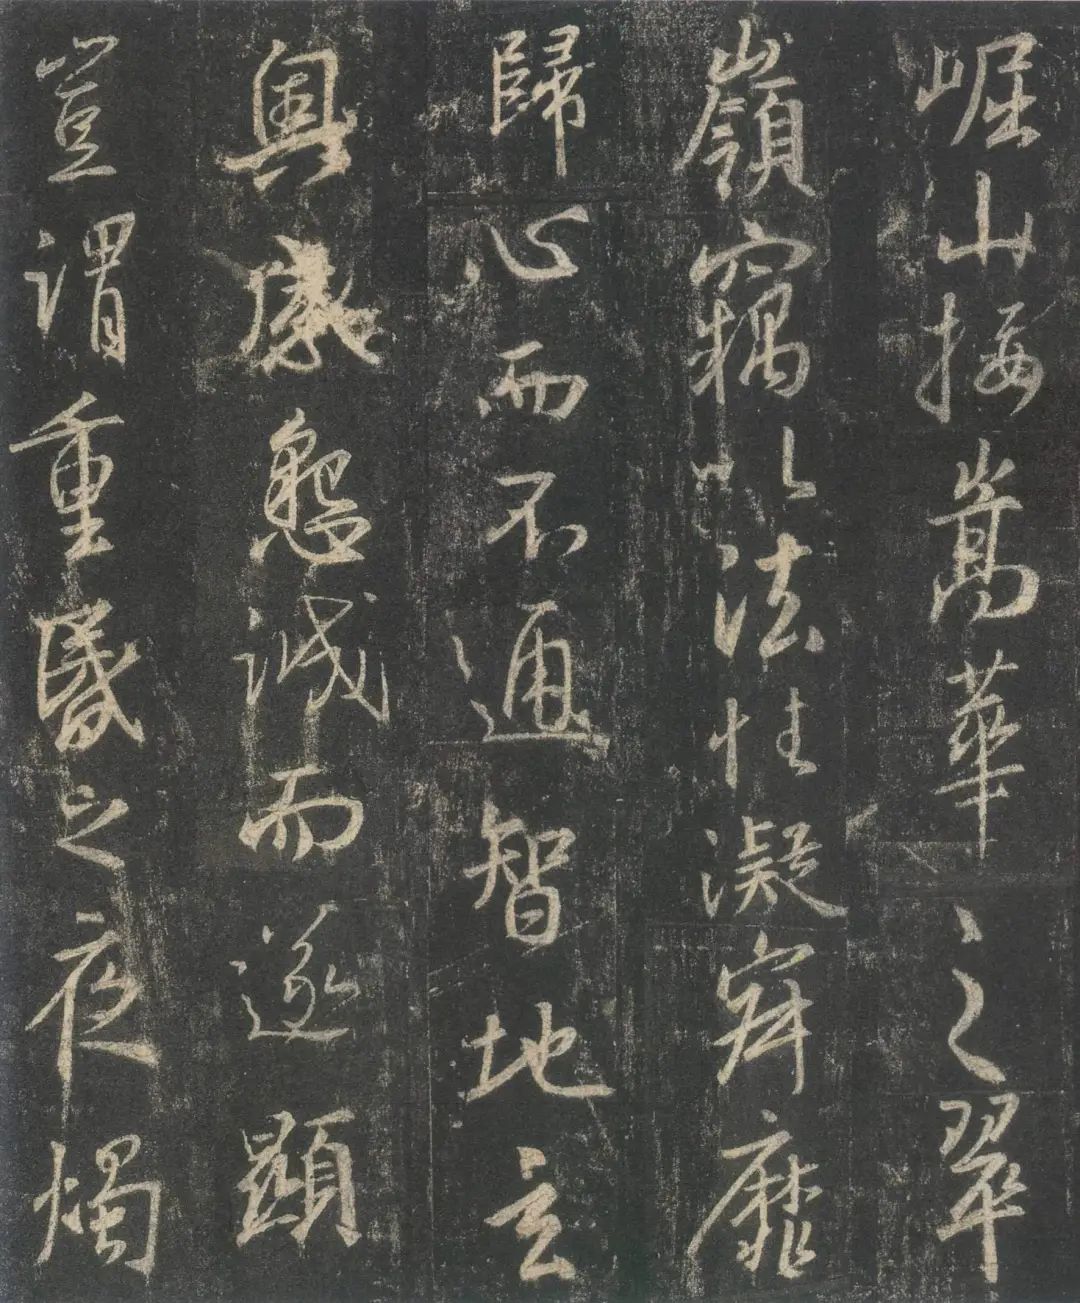 崛山接嵩華之翠
嶺竊以法性凝寂靡
歸心而不通智地玄
奧感懇誠而遂顯
豈謂重昏之夜燭